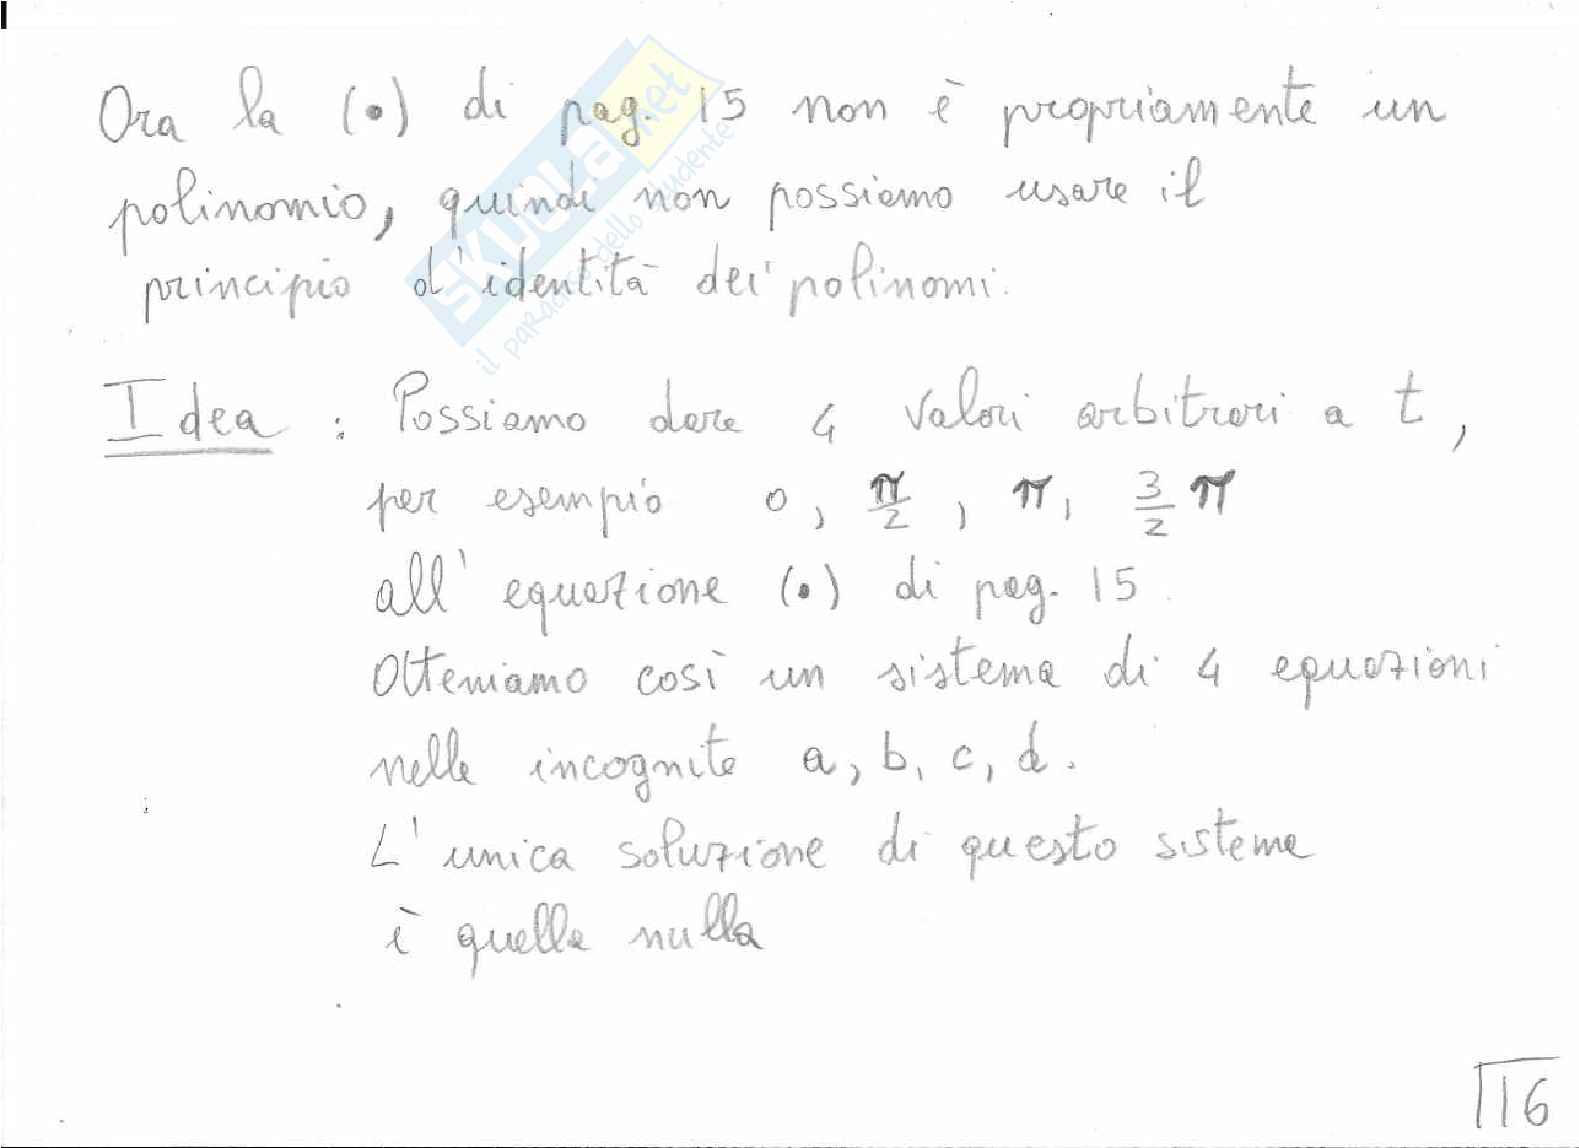 Ora la (•) di pag. 15 non è propriamente un
polinomio, quindi non possiamo usare il
principio d'identità dei polinomi.
Idea : Possiamo dare 4 valori arbitrari a t,
per esempio 0, π/2, π, 3/2 π
all'equazione (•) di pag. 15.
Otteniamo così un sistema di 4 equazioni
nelle incognite a, b, c, d.
L'unica soluzione di questo sistema
è quella nulla
16
SKUOLA.net
il paradiso dello studente